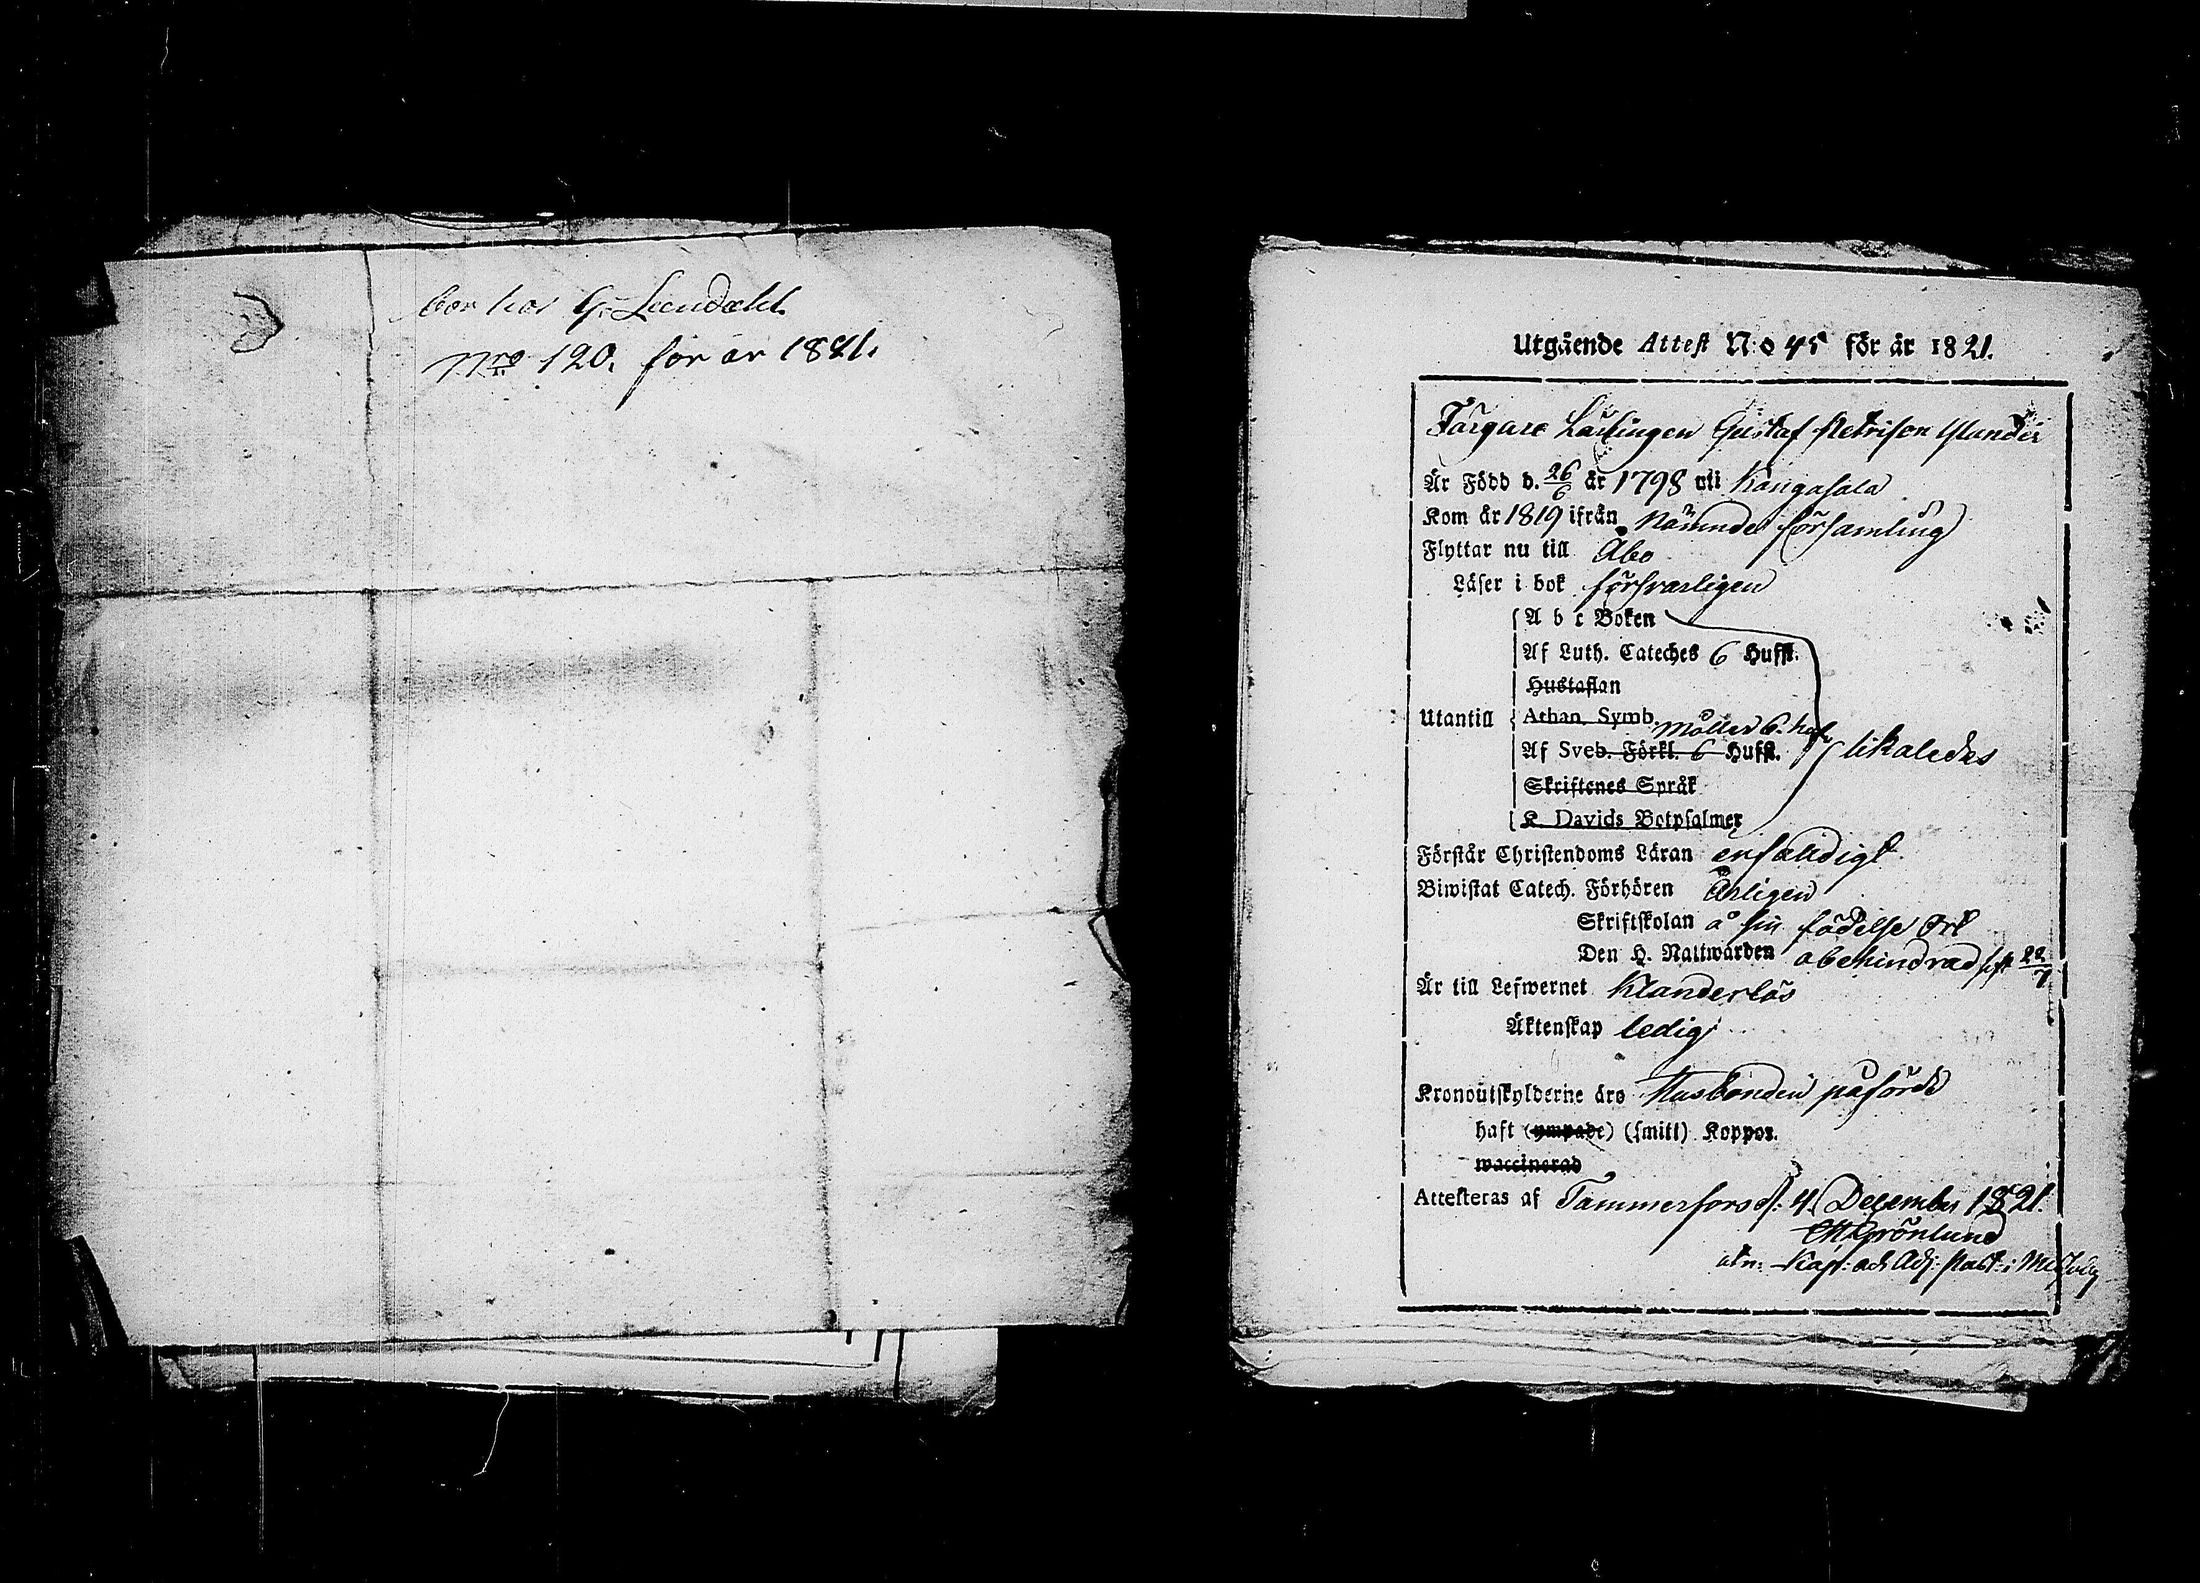 bor hos G: Lundahl.
Nro 120. för år 1821.
Utgående Attest N:o 45 för år 1821.
Färgare Lärlingen Gustaf Petrison Ylander
Är Född d. 26/6 år 1798 uti Kangasala
Kom år 1819 ifrån nämnde församling
Flyttar nu till Åbo
Läser i bok försvarligen
A b c Boken
Af Luth. Cateches 6 Hufst.
Hustaflan
Utantill Athan. Symb. Möllers 6. huf.
Af Sveb. Förkl. 6 Hufst. likaledes
Skriftenes Språk
K. Davids Botpsalmer
Förstår Christendoms Läran enfaldigt.
Biwistat Catech. Förhören Årligen
Skriftskolan å sin födelse Ort
Den H. Nattwarden obehindrad sist 22/7
Är till Lefwernet Klanderlös
Äktenskap ledig
Kronoutskylderne äro Husbonden påförde
haft (ympade) (smitt) Koppor.
waccinerad
Attesteras af Tammerfors d. 4. December 1821.
Grönlund
Kap: och Adj: Past: i